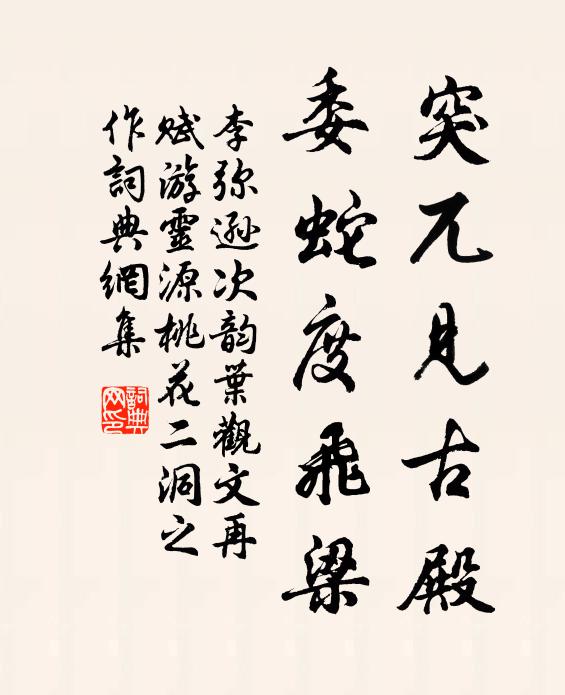 突兀见古殿
委蛇度飛梁
李弥遜次韵葉觀文再
赋游靈源桃花二洞之
作詞典網集
詞典网印